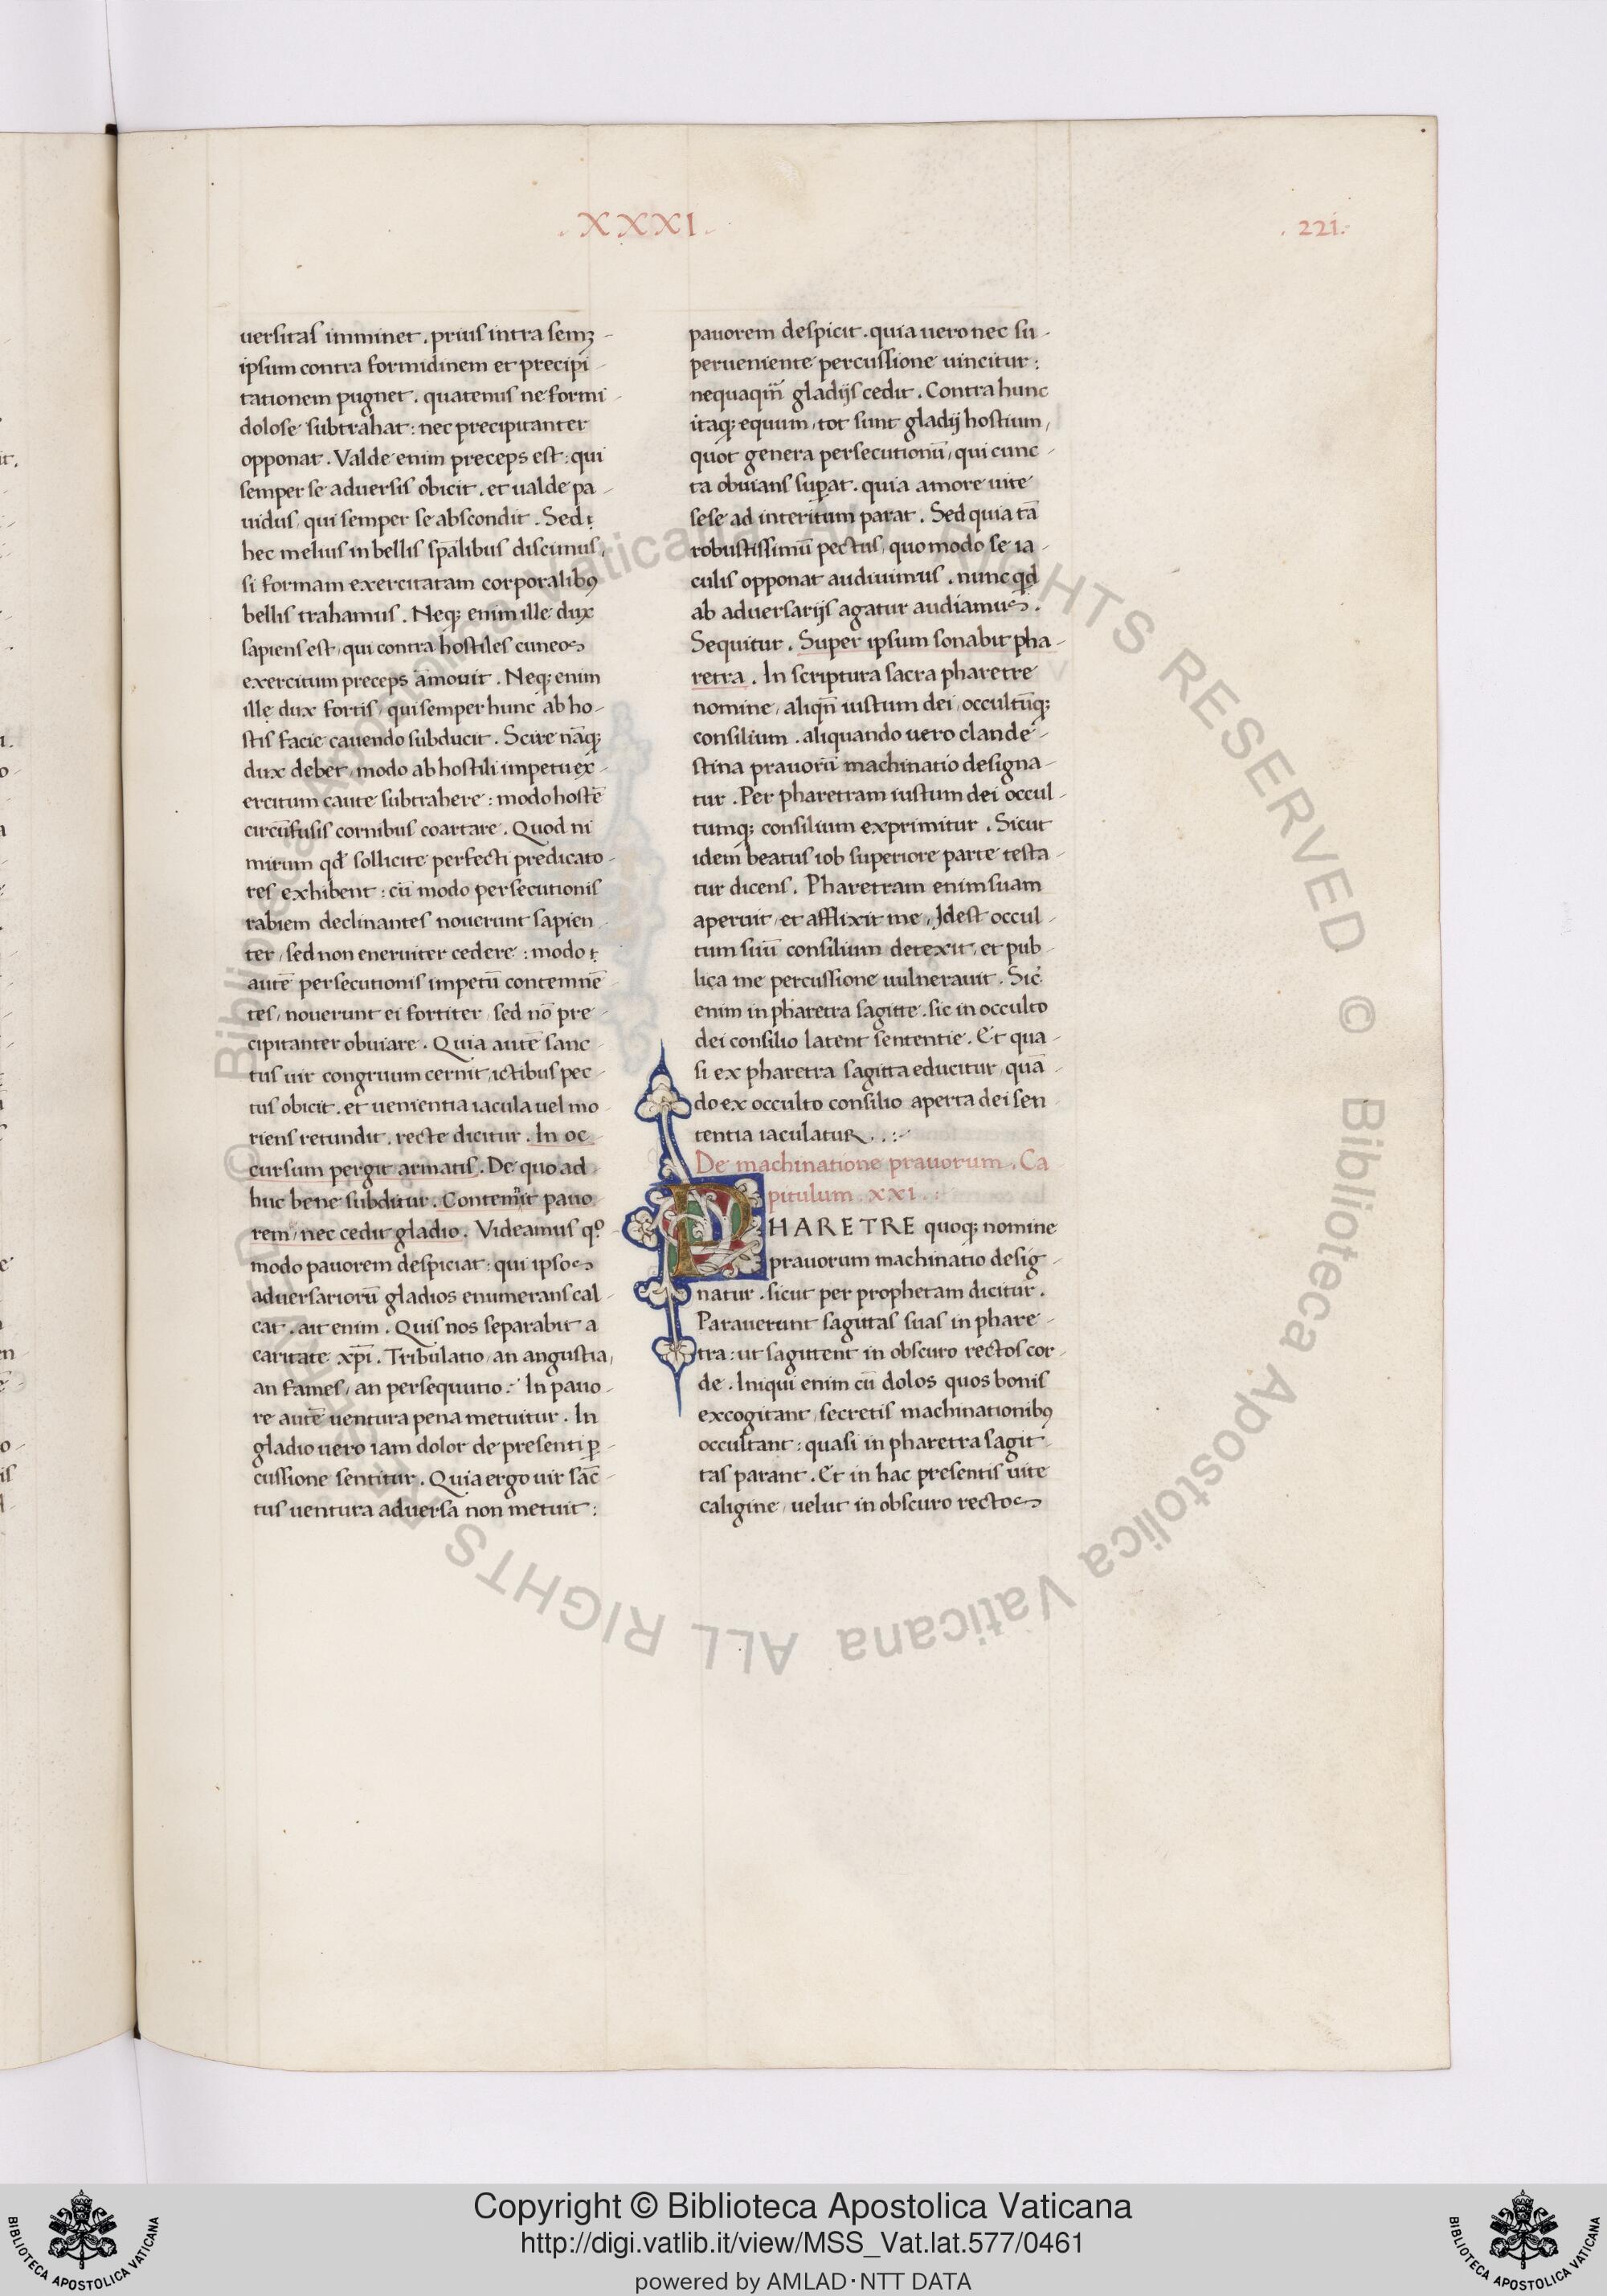 . XXXI .
. 221 .
uersitas imminet . prius intra semꝫ
ipsum contra formidinem et precipi
tationem pugnet . quatenus ne formi
dolose subtrahat : nec precipitanter
opponat . Valde enim preceps est : qui
semper se aduersis obicit . et ualde pa
uidus / qui semper se abscondit . Sed ⁊
hec melius in bellis sp̄alibus discimus ,
si formam exercitatam corporalibꝰ
bellis trahamus . Neqꝫ enim ille dux
sapiens est / qui contra hostiles cuneos
exercitum preceps amouit . Neqꝫ enim
ille dux fortis / qui semper hunc ab ho-
stis facie cauendo subducit . Scire nāqꝫ
dux debet / modo ab hostili impetu ex
ercitum caute subtrahere : modo hostē
circūfusis cornibus coartare . Quod ni
mirum qd̄ sollicite perfecti predicato
res exhibent : cū modo persecutionis
rabiem declinantes nouerunt sapien
ter / sed non eneruiter cedere : modo ⁊
autē persecutionis impetū contemnē
tes / nouerunt ei fortiter / sed nō pre
cipitanter obuiare . Quia autē sanc
tus uir congruum cernit / ictibus pec
tus obicit . et uenientia iacula uel mo
riens retundit . recte dicitur . In oc
cursum pergit armatis . De quo ad
huc bene subditur . Contemnit pauo
rem / nec cedit gladio . Videamus qº
modo pauorem despiciat : qui ipsos
aduersariorū gladios enumerans cal
cat . ait enim . Quis nos separabit a
caritate xp̄i . Tribulatio / an angustia ,
an fames / an persequutio : In pauo
re autē uentura pena metuitur . In
gladio uero iam dolor de presenti ꝑ
cussione sentitur . Quia ergo uir sāc
tus uentura aduersa non metuit :
pauorem despicit . quia uero nec su
perueniente percussione uincitur :
nequaqm̄ gladijs cedit . Contra hunc
itaqꝫ equum / tot sunt gladij hostium ,
quot genera persecutionū / qui cunc
ta obuians suꝑat . quia amore uite
sese ad interitum parat . Sed quia tā
robustissimū pectus / quomodo se ia
culis opponat audiuimus . nunc qd
ab aduersarijs agatur audiamus .
Sequitur . Super ipsum sonabit pha
retra . In scriptura sacra pharetre
nomine / aliqn̄ iustum dei / occultūqꝫ
consilium . aliquando uero clande
stina prauorū machinatio designa
tur . Per pharetram iustum dei occul
tumqꝫ consilium exprimitur . Sicut
idem beatus iob superiore parte testa
tur dicens . Pharetram enim suam
aperuit / et afflixit me . Idest occul
tum suū consilium detexit / et pub
lica me percussione uulnerauit . Sic
enim in pharetra sagitte . sic in occulto
dei consilio latent sententie . Et qua
si ex pharetra sagitta educitur / quā
do ex occulto consilio aperta dei sen
tentia iaculatur . . :
De machinatione prauorum . Ca
pitulum . xxi . :
PHARETRE quoqꝫ nomine
prauorum machinatio desig
natur . sicut per prophetam dicitur .
Parauerunt sagittas suas in phare
tra : ut sagittent in obscuro rectos cor
de . Iniqui enim cū dolos quos bonis
excogitant / secretis machinationibꝰ
occultant : quasi in pharetra sagit
tas parant . Et in hac presentis uite
caligine / uelut in obscuro rectos
© Biblioteca Apostolica Vaticana ALL RIGHTS RESERVED © Biblioteca Apostolica Vaticana ALL RIGHTS RESERVED
BIBLIOTECA APOSTOLICA VATICANA
Copyright © Biblioteca Apostolica Vaticana
http://digi.vatlib.it/view/MSS_Vat.lat.577/0461
powered by AMLAD·NTT DATA
BIBLIOTECA APOSTOLICA VATICANA